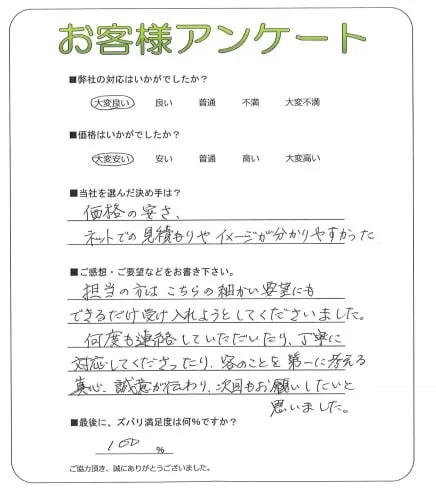 お客様アンケート
■弊社の対応はいかがでしたか?
大変良い 良い 普通 不満 大変不満
■価格はいかがでしたか?
大変安い 安い 普通 高い 大変高い
■当社を選んだ決め手は?
価格の安さ、
ネットでの見積もりやイメージが分かりやすかった
■ご感想・ご要望などをお書き下さい。
担当の方はこちらの細かい要望にも
できるだけ受け入れようとしてくださいました。
何度も連絡していただいたり、丁寧に
対応してくださったり、客のことを第一に考える
真心、誠意が伝わり、次回もお願いしたいと
思いました。
■最後に、ズバリ満足度は何%ですか?
100 %
ご協力頂き、誠にありがとうございました。